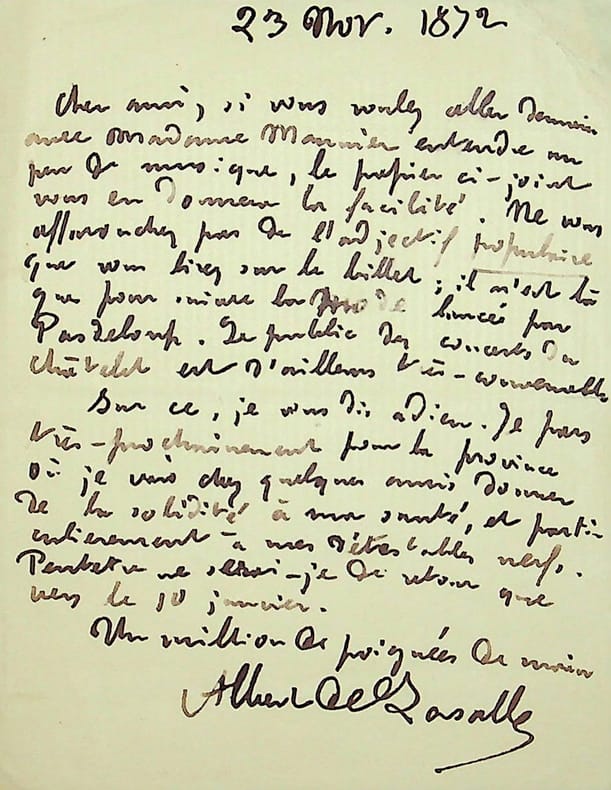 23 Nov. 1872
Cher ami, si vous voulez aller demain
avec Madame entendre un
peu de musique, le papier ci-joint
vous en donnera la facilité. Ne vous
affarouchez pas de l'adjectif populaire
que vous lirez sur le billet ; il n'est là
que pour suivre la mode lancée par
Pasdeloup. Le public des concerts du
châtelet est d'ailleurs très-convenable
Sur ce, je vous dis adieu. Je pars
très-prochainement pour la province
où je vais chez quelques amis donner
de la solidité à ma santé, et parti-
culièrement à mes détestables nerfs.
Peutêtre ne serai-je de retour que
vers le 10 janvier.
Un million de poignées de main
Albert de Lasalle